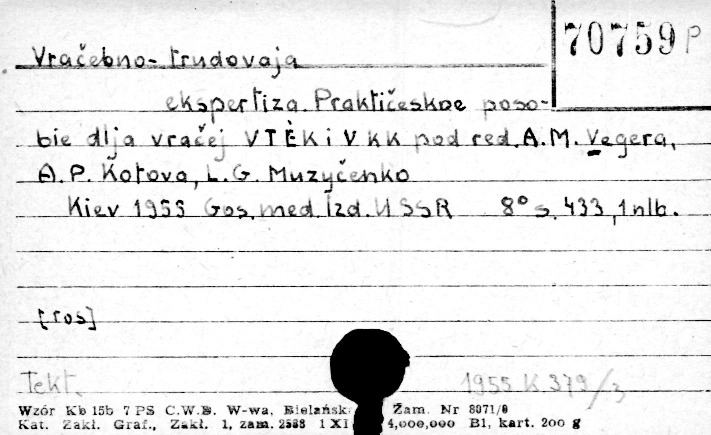 70759 P
Vračebno-trudovaja
ekspertiza. Praktičeskoe poso-
bie dlja vračej VTĖK i VKK pod red. A.M. Vegera,
A.P. Kotova, L.G. Muzyčenko
Kiev 1955 Gos. med. Izd. USSR 8° s. 433, 1 nlb.
[ros]
Tekt. 1955 K 379/3
Wzór Kb 15b 7 PS C.W.B. W-wa, Bielańsk Zam. Nr 8071/0
Kat. Zakł. Graf., Zakł. 1, zam. 2588 1 XI 4,000,000 B1, kart. 200 g